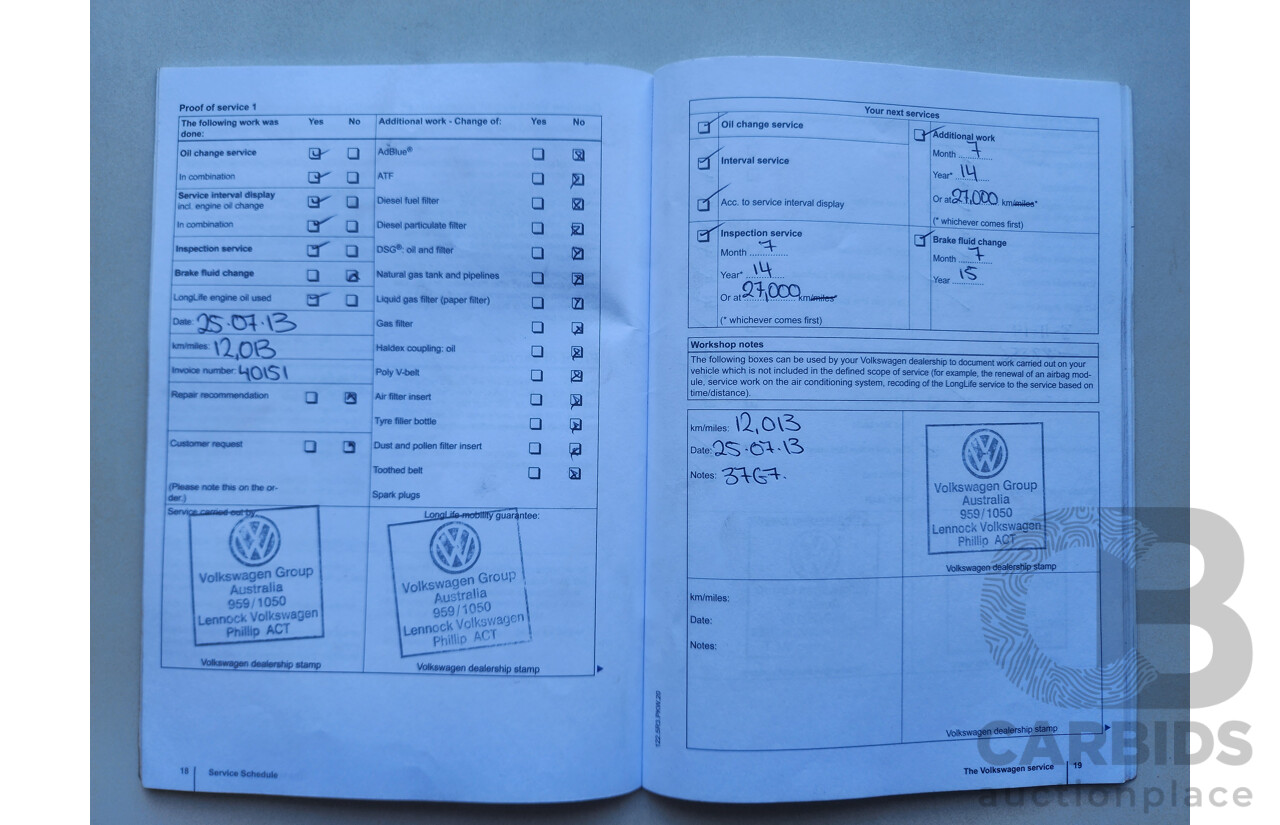 Proof of service 1
The following work was done: Yes No
Oil change service
In combination
Service interval display
incl. engine oil change
In combination
Inspection service
Brake fluid change
LongLife engine oil used
Date: 25.07.13
km/miles: 12,013
Invoice number: 40151
Repair recommendation
Customer request
(Please note this on the or-
der.)
Service carried out by:
Volkswagen Group
Australia
959/1050
Lennock Volkswagen
Phillip ACT
Volkswagen dealership stamp
Additional work - Change of: Yes No
AdBlue®
ATF
Diesel fuel filter
Diesel particulate filter
DSG®: oil and filter
Natural gas tank and pipelines
Liquid gas filter (paper filter)
Gas filter
Haldex coupling: oil
Poly V-belt
Air filter insert
Tyre filler bottle
Dust and pollen filter insert
Toothed belt
Spark plugs
LongLife mobility guarantee:
Volkswagen Group
Australia
959/1050
Lennock Volkswagen
Phillip ACT
Volkswagen dealership stamp
18 Service Schedule
Your next services
Oil change service
Interval service
Acc. to service interval display
Inspection service
Month 7
Year* 14
Or at 27,000 km/miles*
(* whichever comes first)
Additional work
Month 7
Year* 14
Or at 27,000 km/miles*
(* whichever comes first)
Brake fluid change
Month 7
Year 15
Workshop notes
The following boxes can be used by your Volkswagen dealership to document work carried out on your
vehicle which is not included in the defined scope of service (for example, the renewal of an airbag mod-
ule, service work on the air conditioning system, recoding of the LongLife service to the service based on
time/distance).
km/miles: 12,013
Date: 25.07.13
Notes: 37G7.
Volkswagen Group
Australia
959/1050
Lennock Volkswagen
Phillip ACT
Volkswagen dealership stamp
km/miles:
Date:
Notes:
Volkswagen dealership stamp
The Volkswagen service 19
CB
CARBIDS
auctionplace